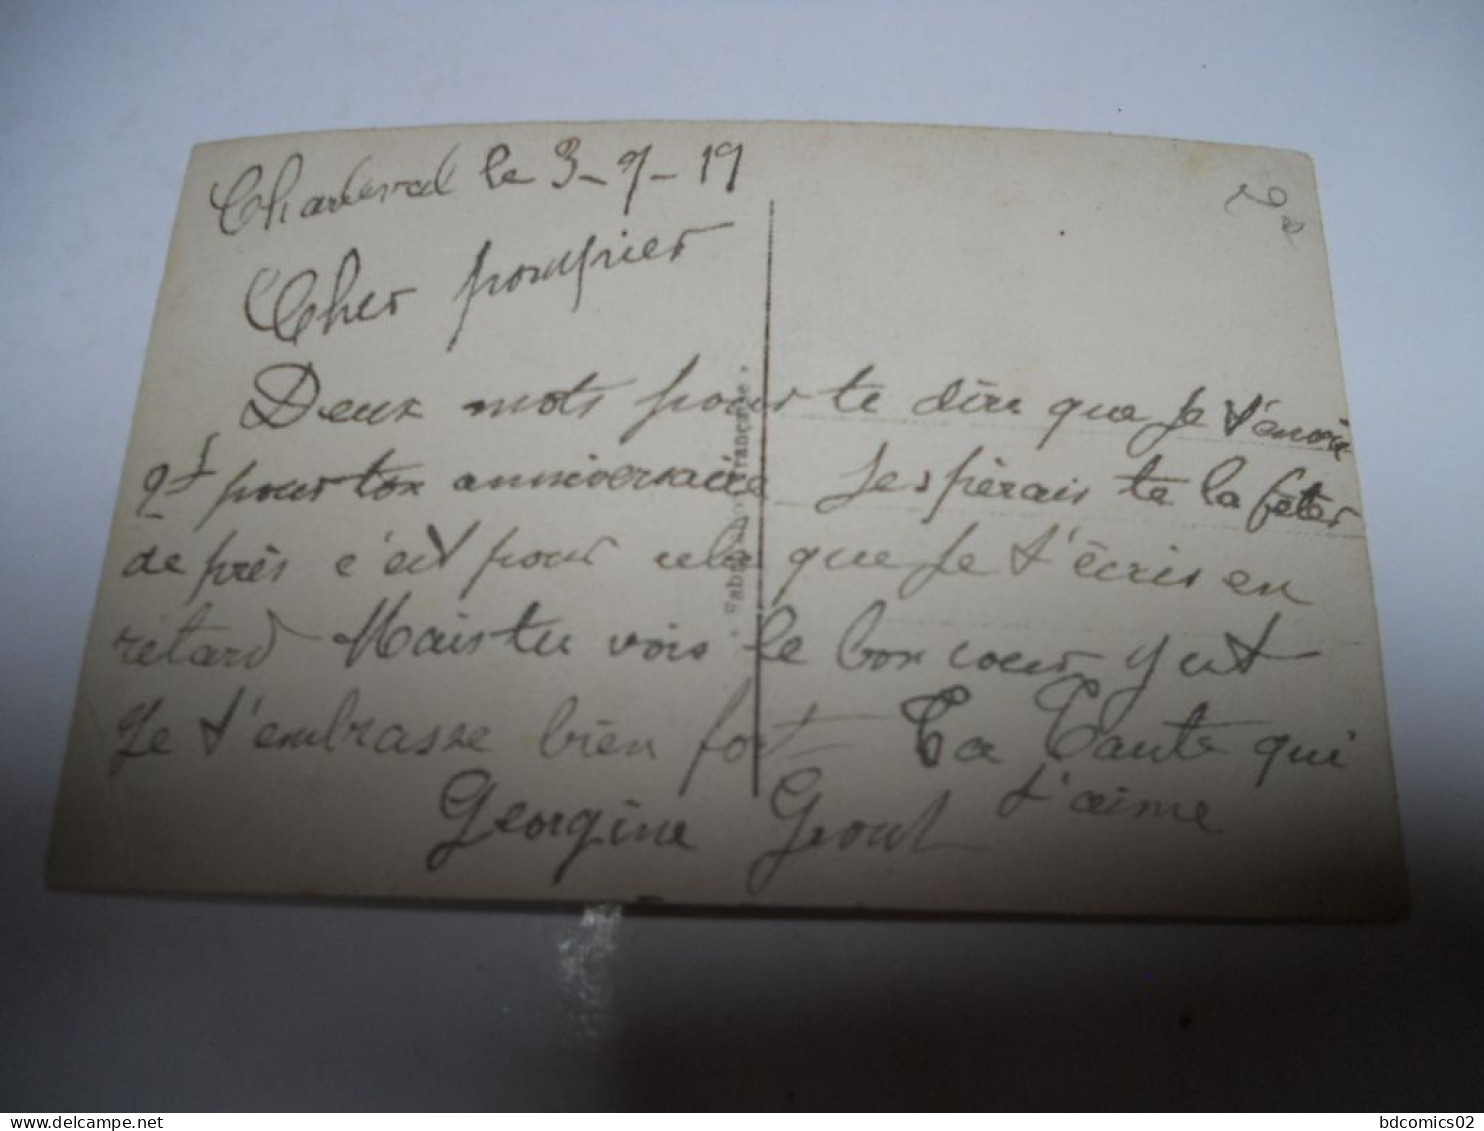 Charleval le 3-9-19
Cher pompier
Deux mots pour te dire que Je t'envoie
qt pour ton anniversaire Jespèrais te la fêter
de près c'est pour cela que Je t'écris en
retard Mais tu vois le bon coeur y est
Je t'embrasse bien fort Ta Tante qui
t'aime
Georgine Grout
Fabrication Française
bdcomics02